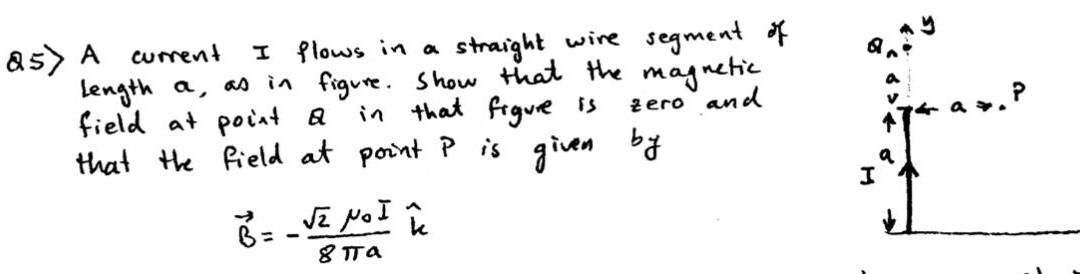 Q5> A current I flows in a straight wire segment of
length a, as in figure. Show that the magnetic
field at point Q in that figure is zero and
that the field at point P is given by
B⃗ = - √2 μ₀I / 8πa k̂
y
Q
a
a P
a
I